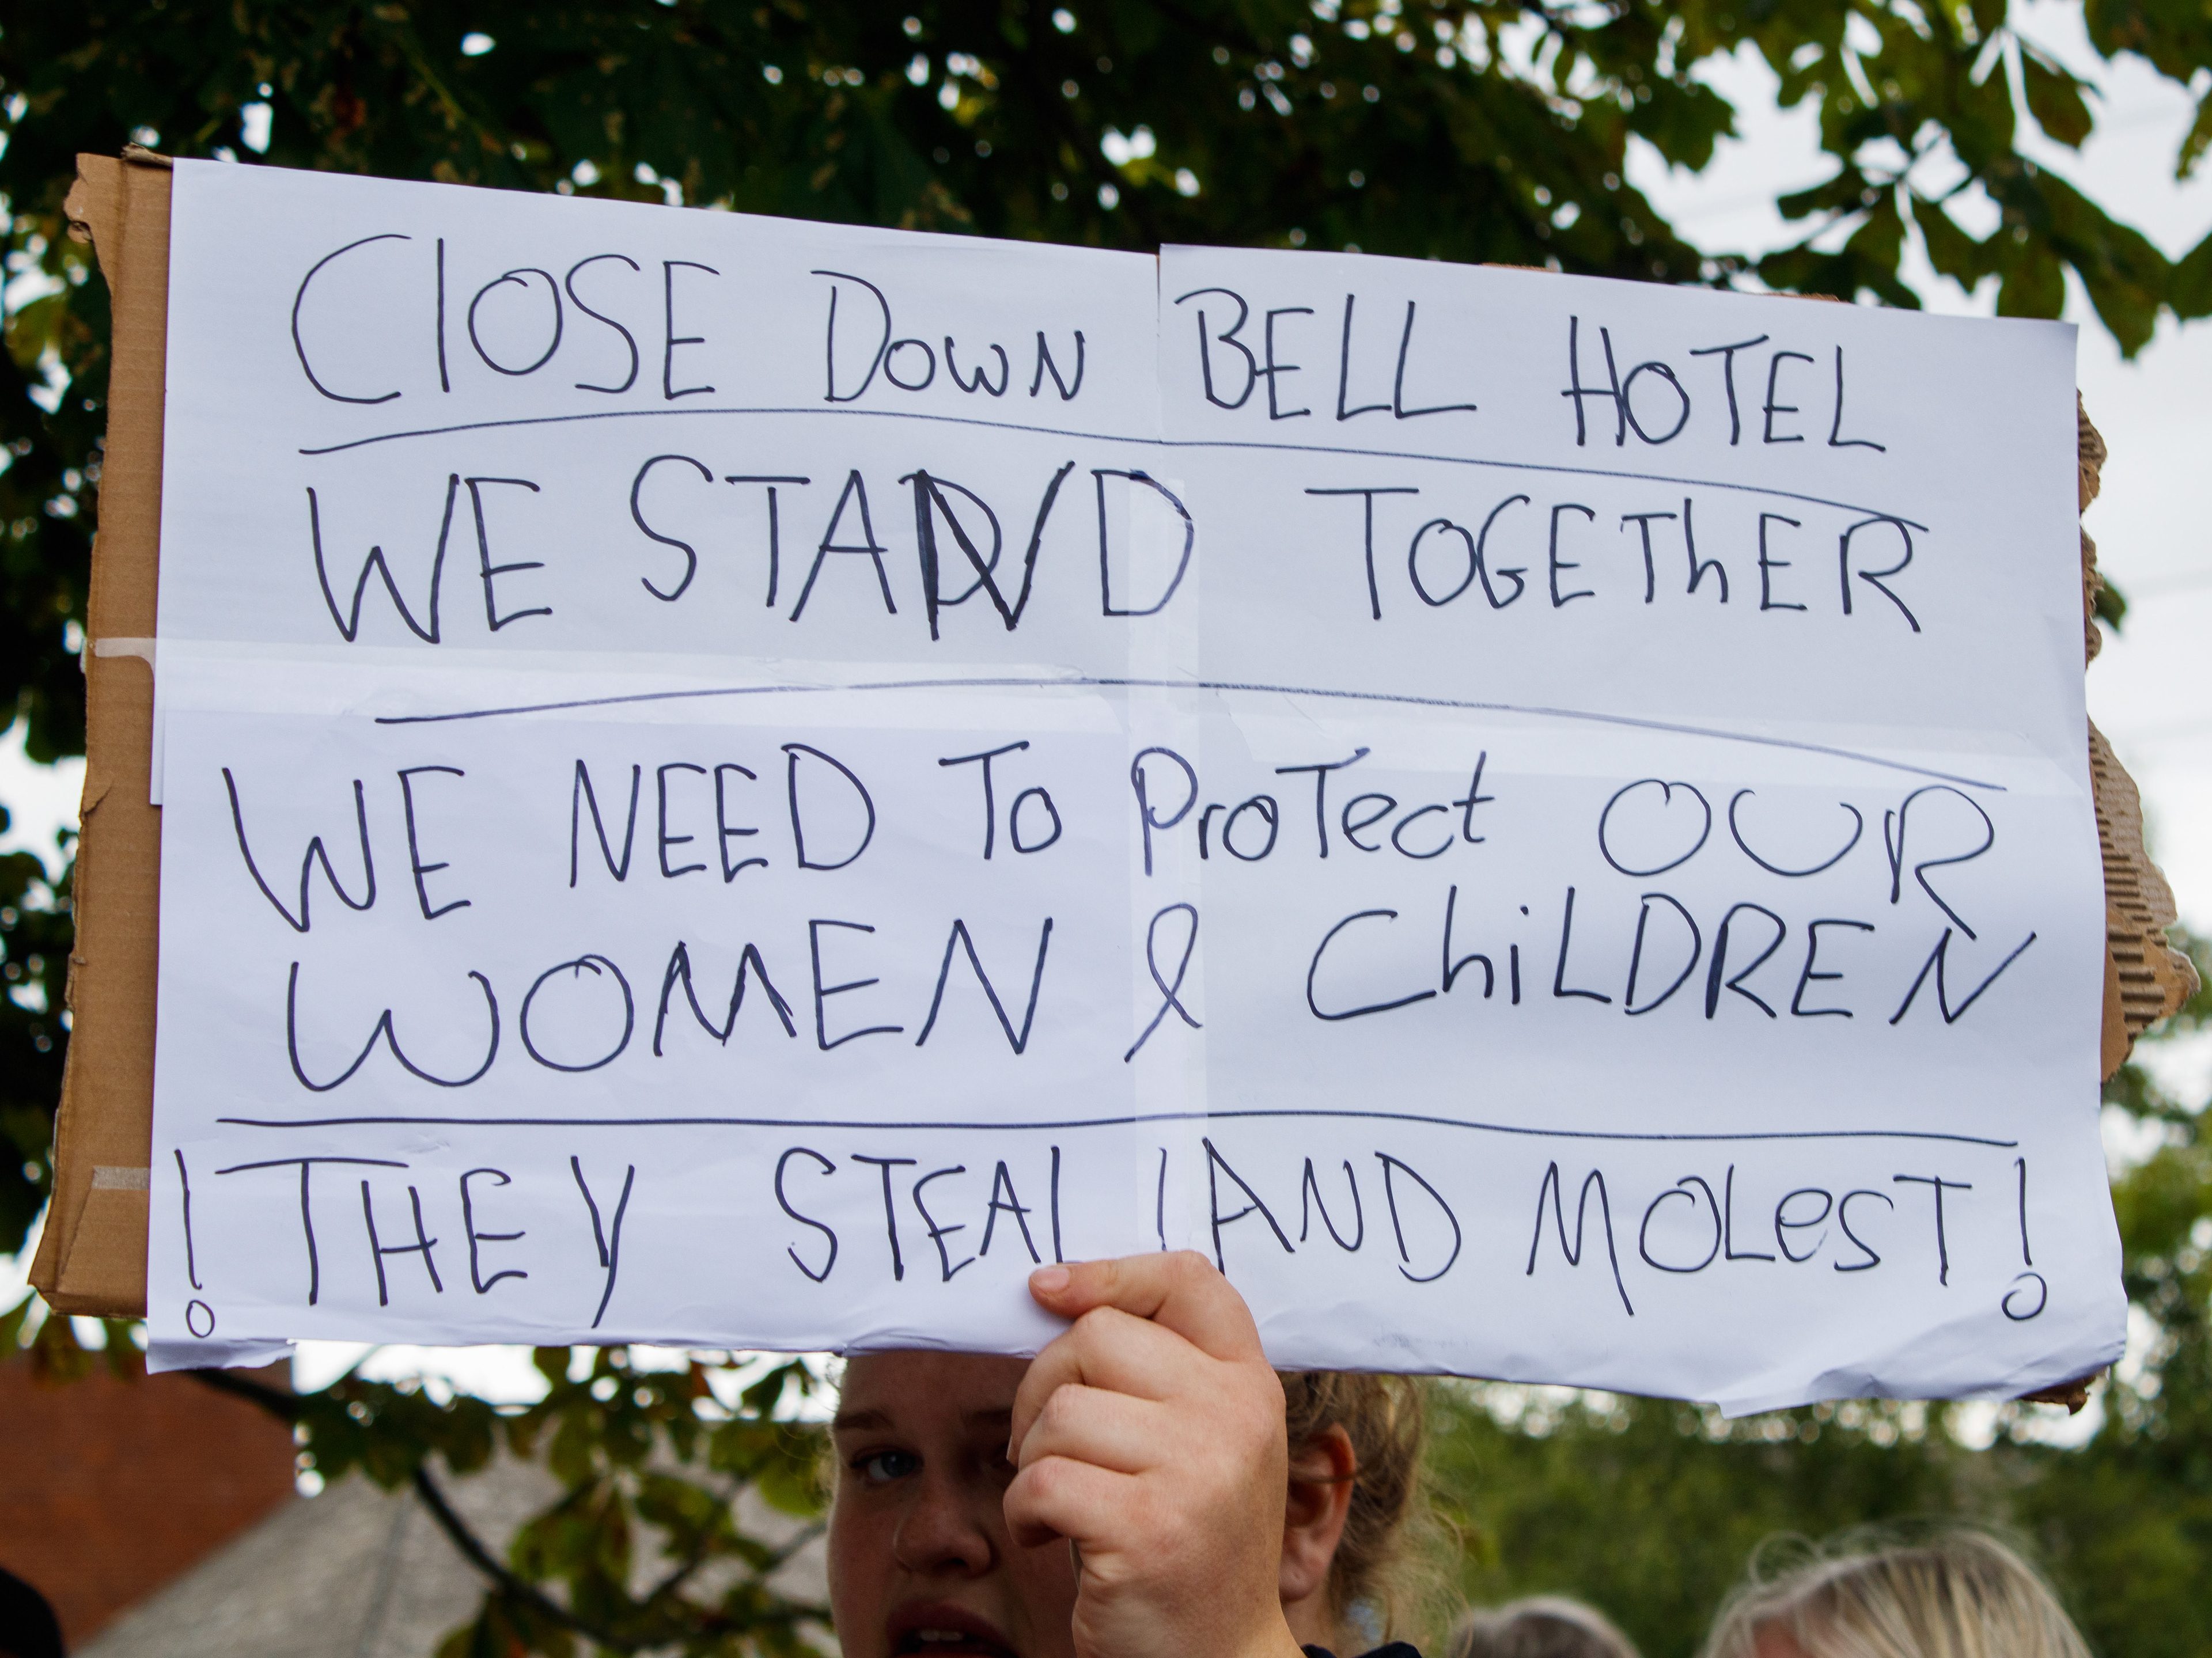 ClOSE DOWN BELL HOTEL
WE STAND TOGETHER
WE NEED To ProTect OUR
WOMEN & ChiLDREN
! THEY STEAl AND MOLesT!